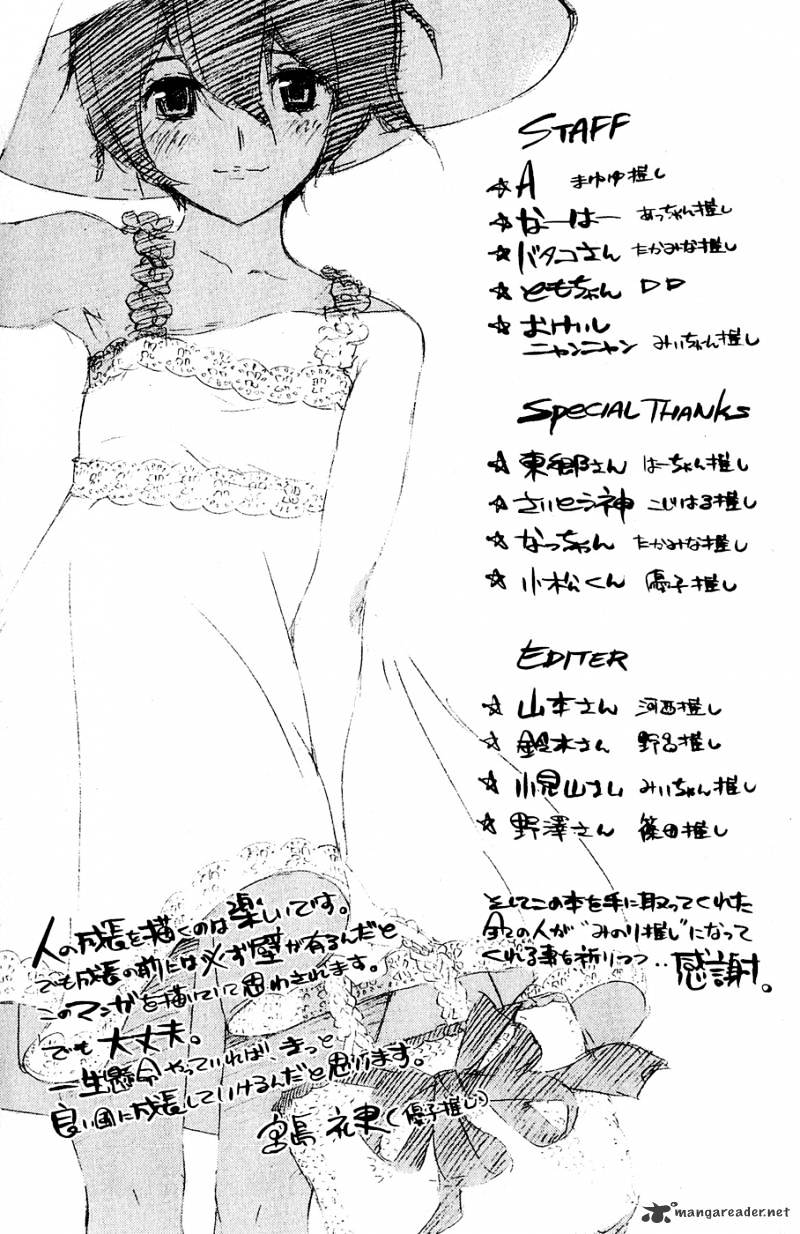 STAFF
☆ A まゆゆ推し
☆ なーはー あっちゃん推し
☆ バタコさん たかみな推し
☆ ともちゃん DD
☆ おけいし
ニャンニャン みぃちゃん推し
SPECIAL THANKS
☆ 東郷さん はーちゃん推し
☆ さいとう神 こじはる推し
☆ なっちゃん たかみな推し
☆ 小松くん 優子推し
EDITER
☆ 山本さん 河西推し
☆ 鈴木さん 野呂推し
☆ 小見山さん みぃちゃん推し
☆ 野澤さん 篠田推し
そしてこの本を手に取ってくれた
全ての人が"みのり推し"になって
くれる事を祈りつつ‥感謝。
人の成長を描くのは楽しいです。
でも成長の前には必ず壁が有るんだと
このマンガを描いていて思わされます。
でも大丈夫。
一生懸命やっていれば、きっと
良い風に成長していけるんだと思います。
宮島礼吏(優子推し)
mangareader.net